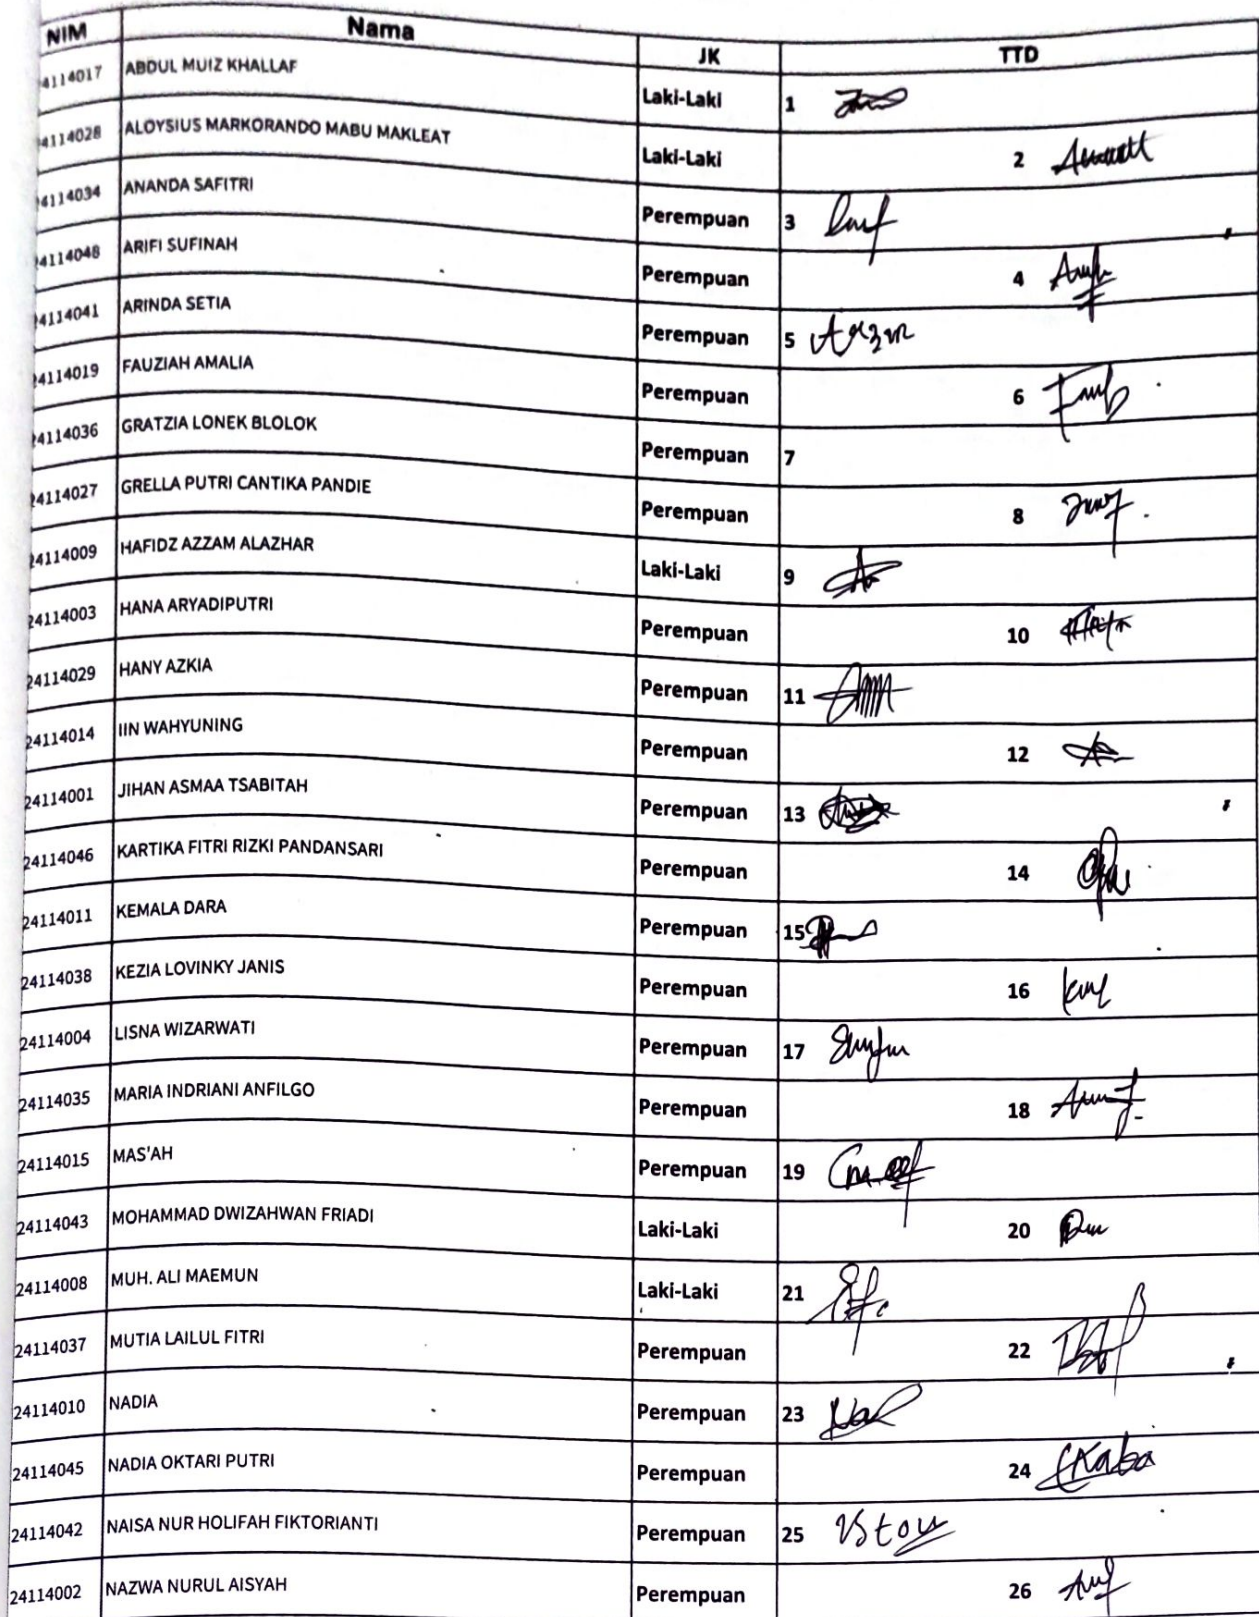 NIM Nama JK TTD
4114017 ABDUL MUIZ KHALLAF Laki-Laki 1
4114028 ALOYSIUS MARKORANDO MABU MAKLEAT Laki-Laki 2
4114034 ANANDA SAFITRI Perempuan 3
4114048 ARIFI SUFINAH Perempuan 4
4114041 ARINDA SETIA Perempuan 5
4114019 FAUZIAH AMALIA Perempuan 6
4114036 GRATZIA LONEK BLOLOK Perempuan 7
4114027 GRELLA PUTRI CANTIKA PANDIE Perempuan 8
4114009 HAFIDZ AZZAM ALAZHAR Laki-Laki 9
24114003 HANA ARYADIPUTRI Perempuan 10
24114029 HANY AZKIA Perempuan 11
24114014 IIN WAHYUNING Perempuan 12
24114001 JIHAN ASMAA TSABITAH Perempuan 13
24114046 KARTIKA FITRI RIZKI PANDANSARI Perempuan 14
24114011 KEMALA DARA Perempuan 15
24114038 KEZIA LOVINKY JANIS Perempuan 16
24114004 LISNA WIZARWATI Perempuan 17
24114035 MARIA INDRIANI ANFILGO Perempuan 18
24114015 MAS'AH Perempuan 19
24114043 MOHAMMAD DWIZAHWAN FRIADI Laki-Laki 20
24114008 MUH. ALI MAEMUN Laki-Laki 21
24114037 MUTIA LAILUL FITRI Perempuan 22
24114010 NADIA Perempuan 23
24114045 NADIA OKTARI PUTRI Perempuan 24
24114042 NAISA NUR HOLIFAH FIKTORIANTI Perempuan 25
24114002 NAZWA NURUL AISYAH Perempuan 26